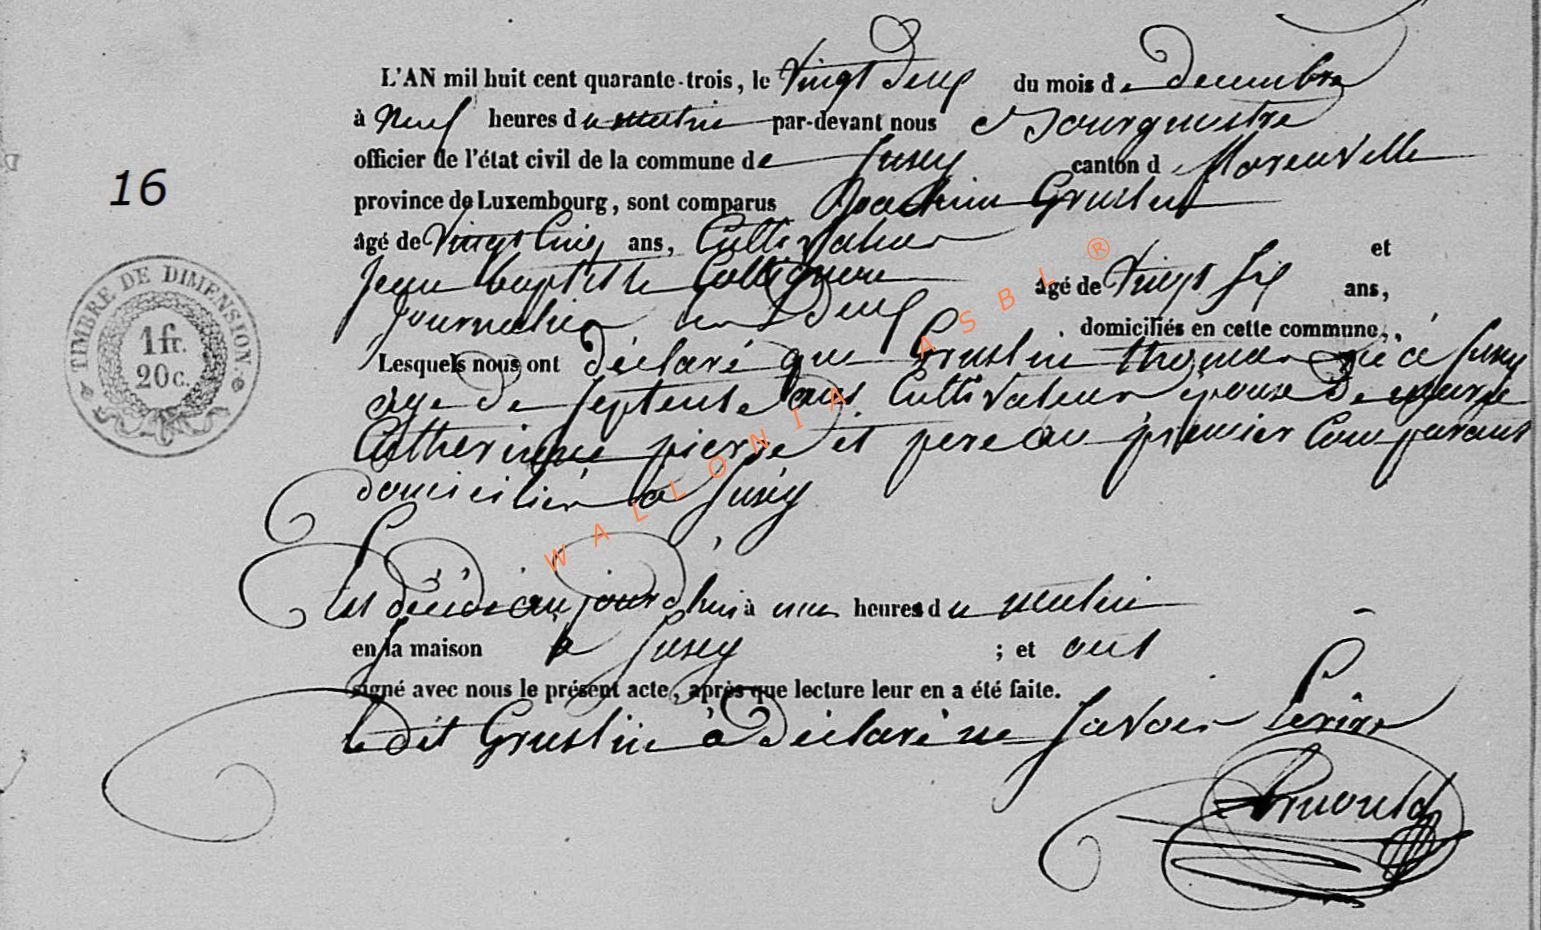 L'AN mil huit cent quarante-trois, le Vingt deux du mois de decembre
à Neuf heures du matin par-devant nous Bourgmestre
officier de l'état civil de la commune de Jusey canton d
province de Luxembourg, sont comparus Joachim Gruslin
âgé de Vingt Cinq ans, Cultivateur et
Jean baptiste Collignon âgé de Vingt Six ans,
Journalier deux domiciliés en cette commune,
Lesquels nous ont déclaré que Gruslin thomas né à Jusey
age de Septente ans Cultivateur époux de marie
Catherinne pierre et pere au premier Comparant
domicilié à Jusey
Est décédé aujourd'hui à une heures du matin
en sa maison a Jusey ; et ont
signé avec nous le présent acte, après que lecture leur en a été faite.
le dit Gruslin à déclaré ne Savoir Ecrire
Arnould
16
TIMBRE DE DIMENSION.
1 fr.
20 c.
WALLONIA ASBL ®